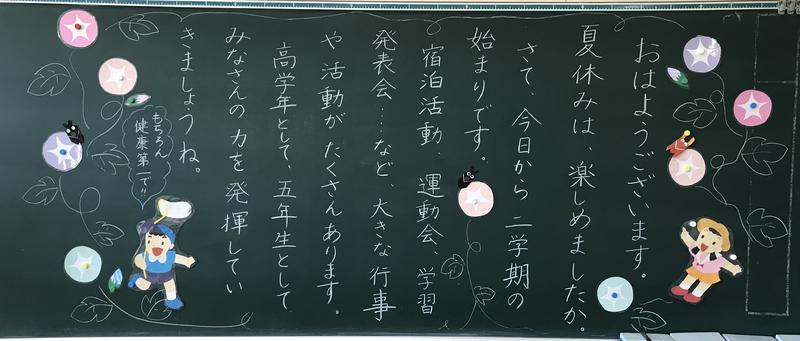 おはようございます。
夏休みは、楽しめましたか。
さて、今日から二学期の
始まりです。
宿泊活動、運動会、学習
発表会…など、大きな行事
や活動がたくさんあります。
高学年として、五年生として
みなさんの力を発揮してい
きましょうね。
もちろん
健康第一で!!